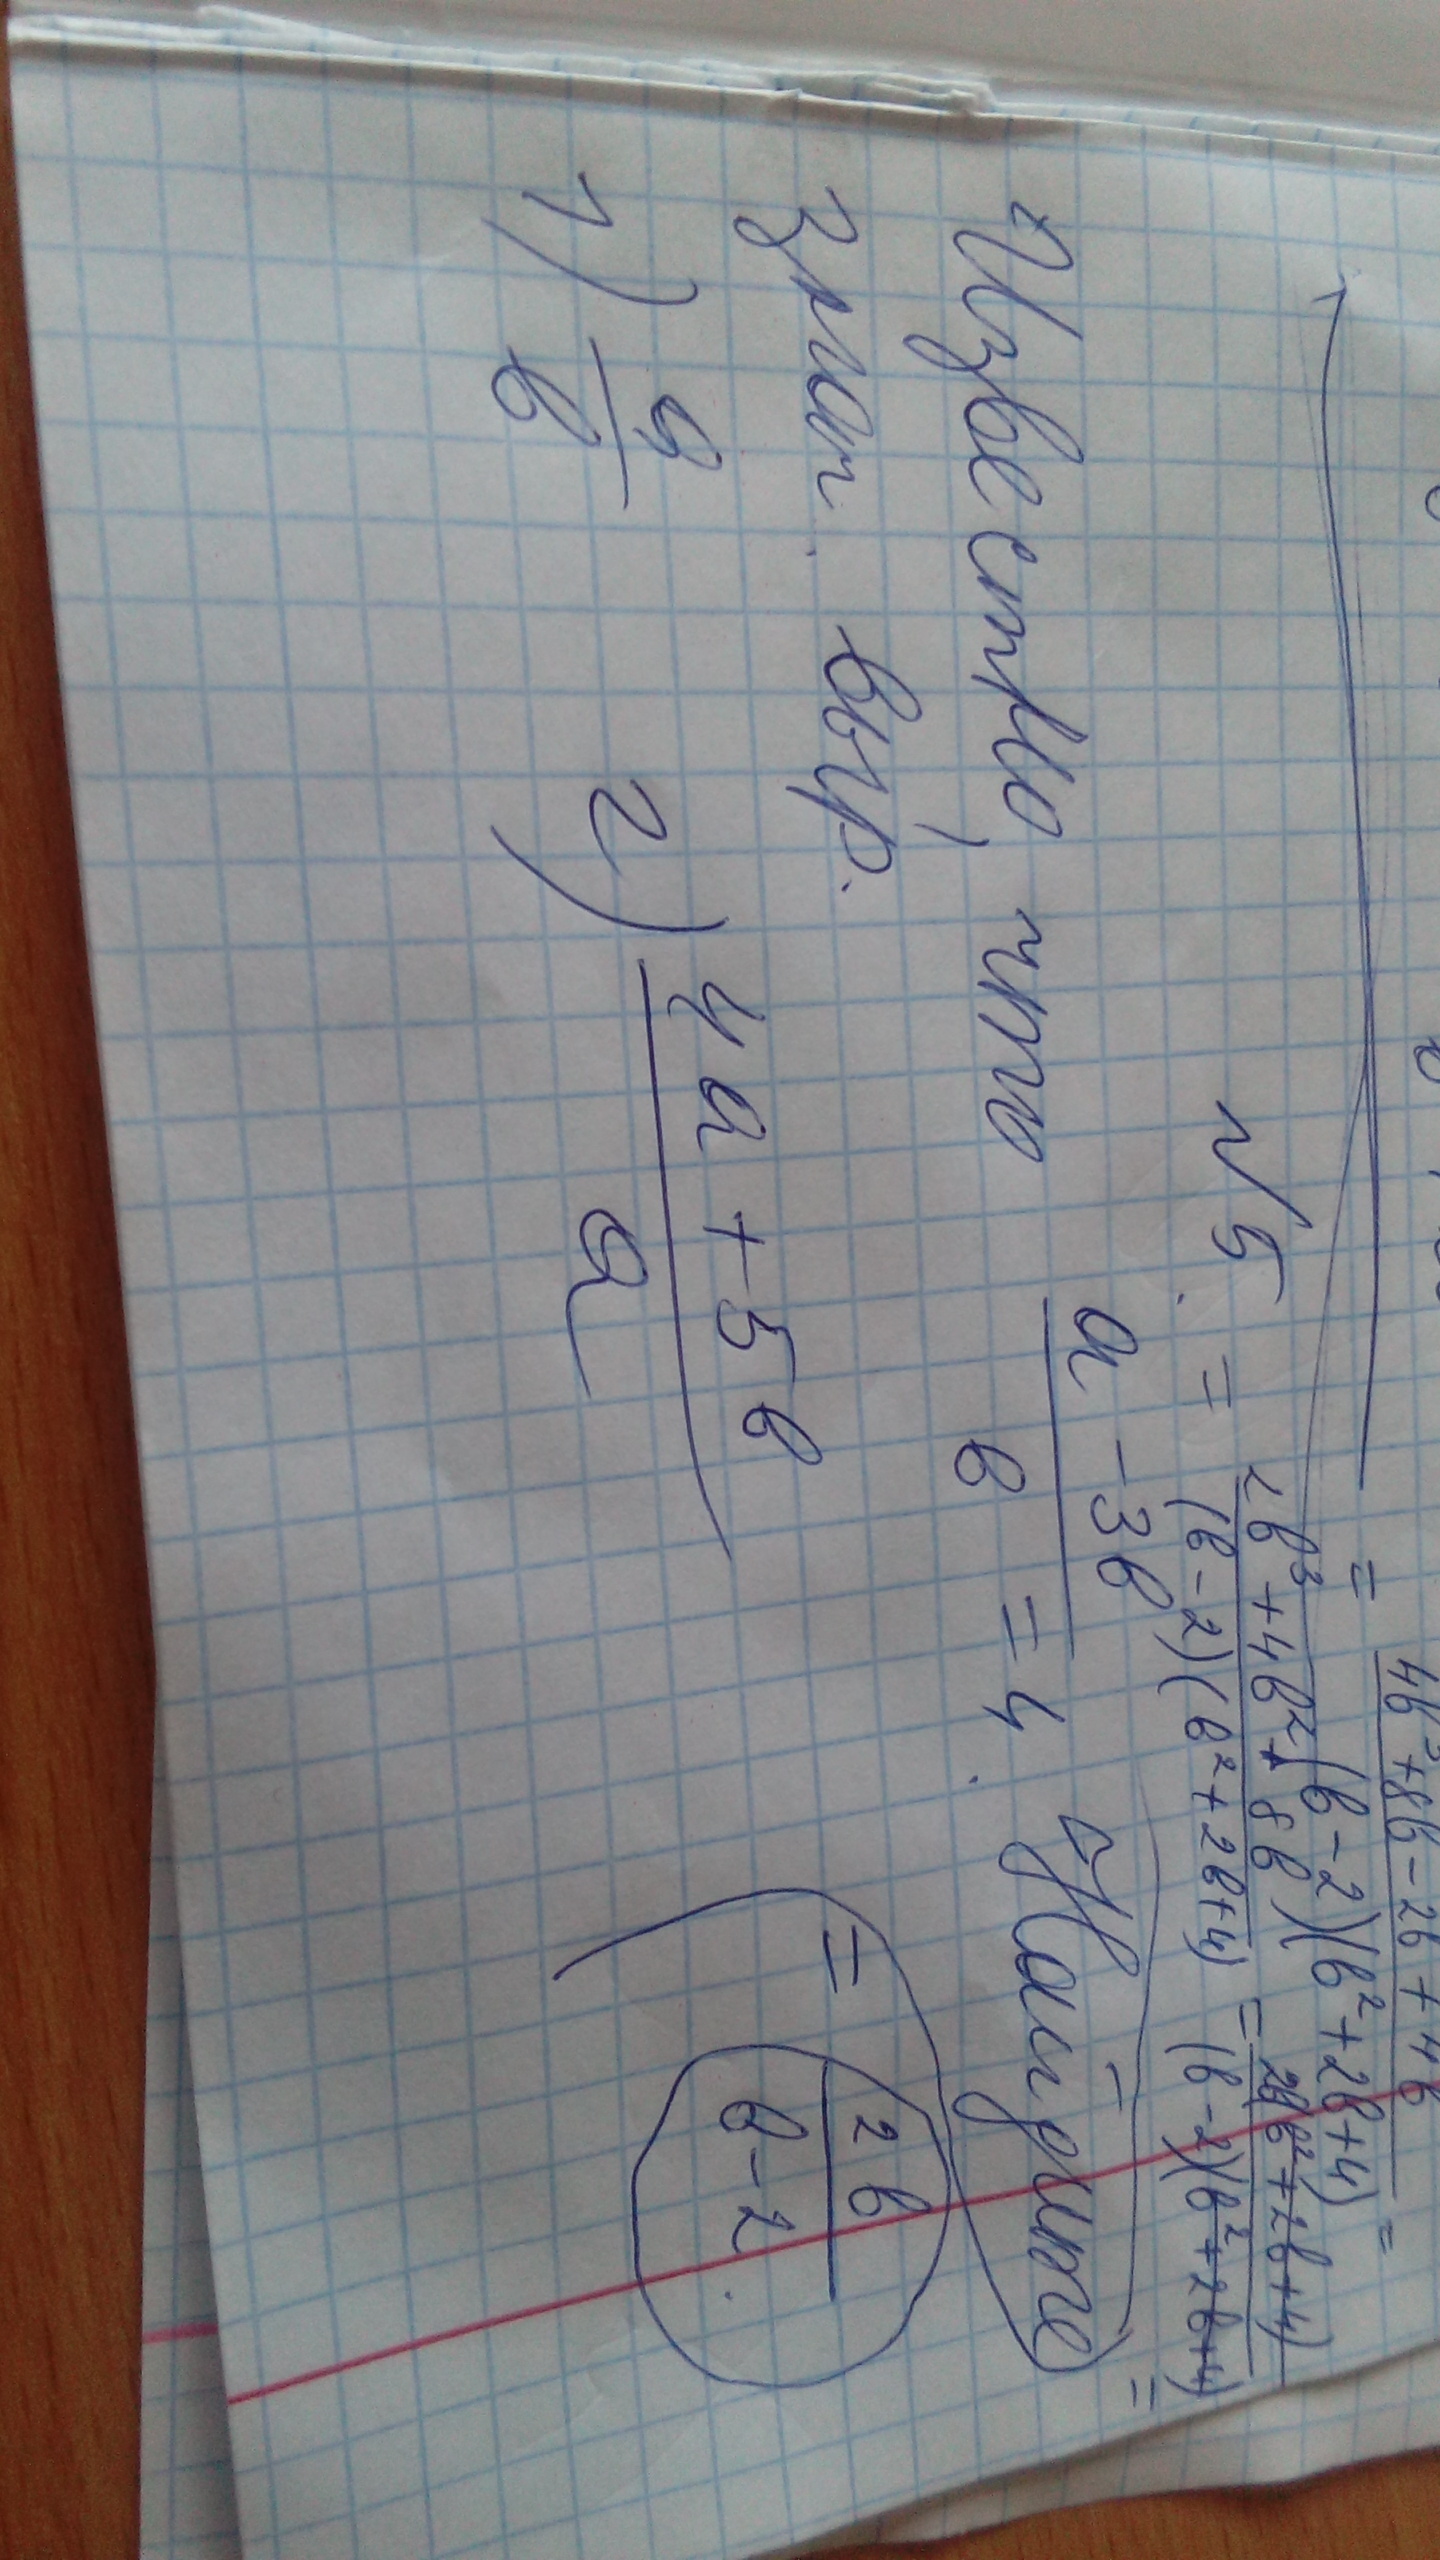 = (4b³+8b-2b+4b)/((b-2)(b²+2b+4)) =
= (2b³+4b²+8b)/((b-2)(b²+2b+4)) = (2b(b²+2b+4))/((b-2)(b²+2b+4)) =
= 2b/(b-2).
N5.
Известно, что (a-3b)/b = 4. Найдите
знач. выр.
1) a/b 2) (4a+5b)/a